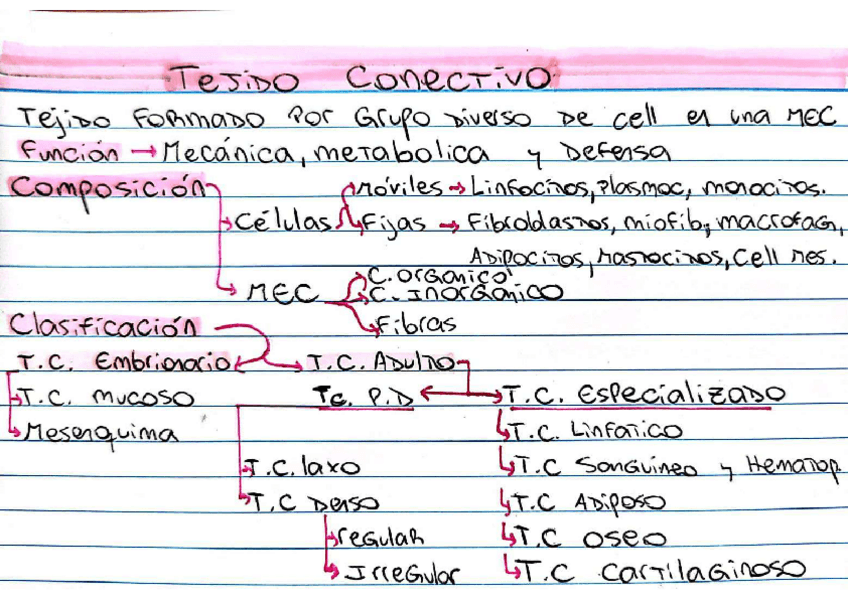 Tejido Conectivo
Tejido Formado Por Grupo Diverso De cell en una MEC
Función → Mecánica, metabolica y Defensa
Composición
Células
móviles → Linfocitos, Plasmoc, monocitos.
Fijas → Fibroblastos, miofib, macrofag,
Adipocitos, Mastocitos, Cell Mes.
MEC
C. Orgánico
C. Inorgánico
Fibras
Clasificación
T.C. Embrionario
T.C. Adulto
T.C. mucoso
Mesenquima
Tc. P.D
T.C. laxo
T.C Denso
regular
Irregular
T.C. Especializado
T.C. Linfatico
T.C Sanguíneo y Hematop.
T.C Adiposo
T.C oseo
T.C Cartilaginoso